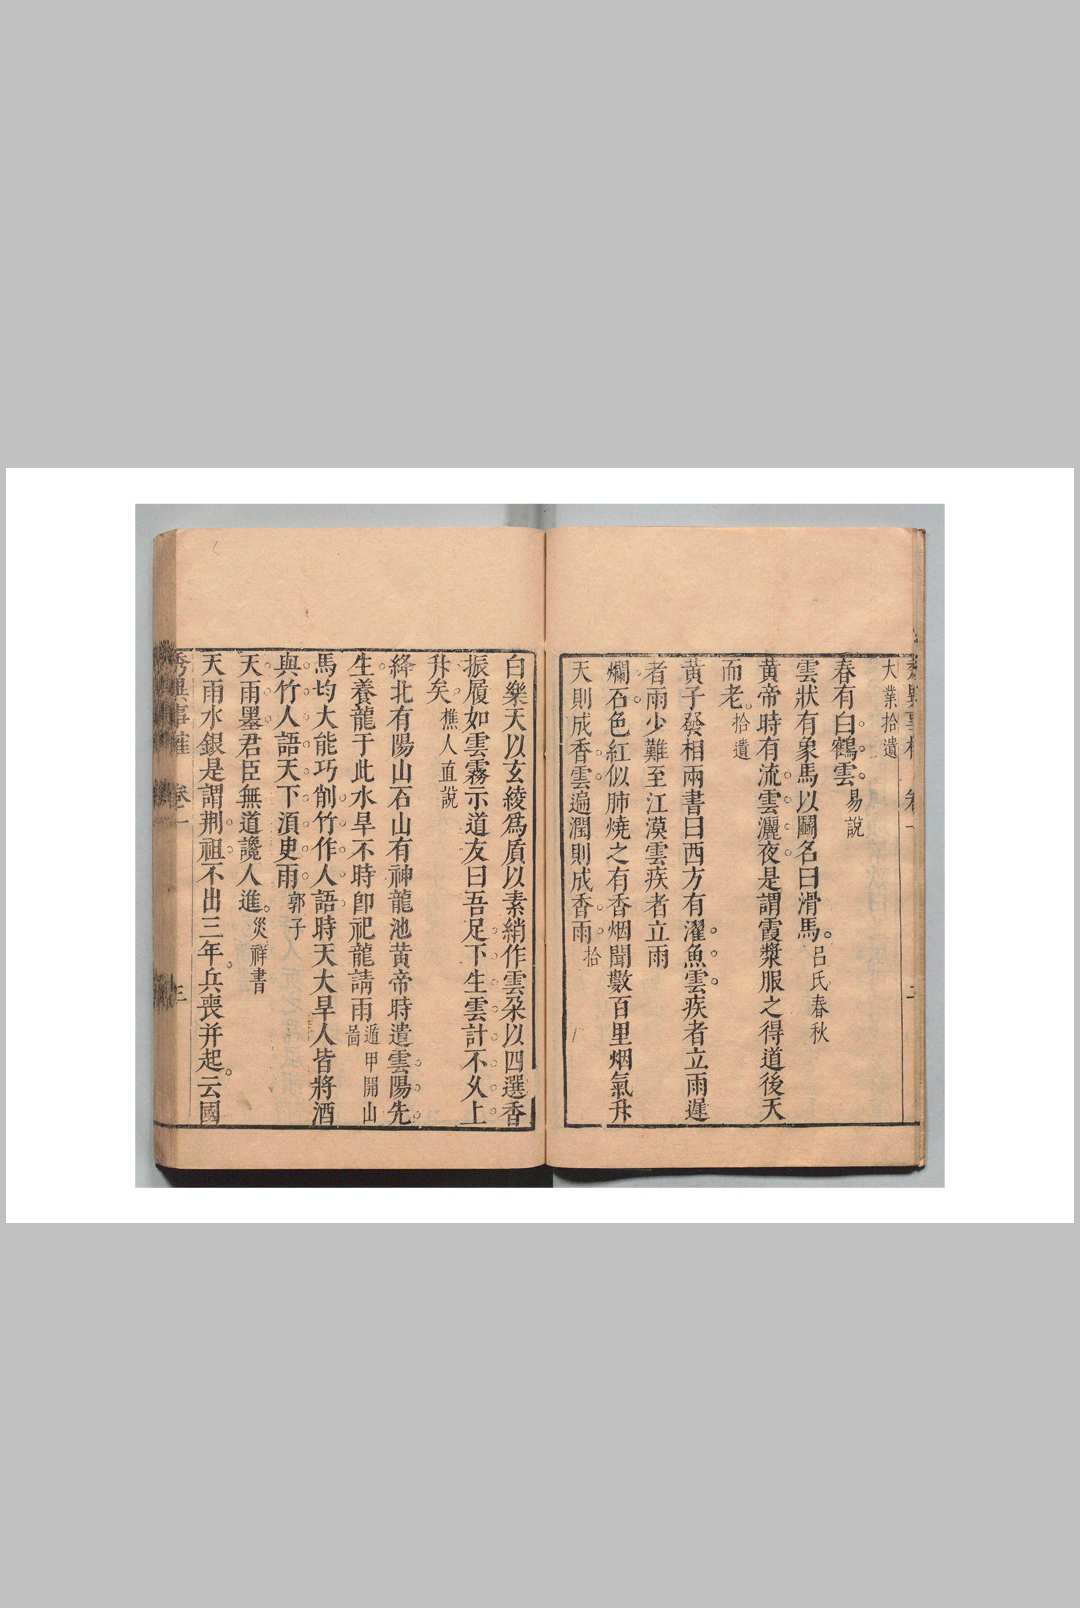 大業拾遺
春有白鶴雲易說
雲狀有象馬以鬭名曰滑馬呂氏春秋
黃帝時有流雲灑夜是謂霞漿服之得道後天
而老拾遺
黃子發相雨書曰西方有濯魚雲疾者立雨遲
者雨少難至江漢雲疾者立雨
爛石色紅似肺燒之有香烟聞數百里烟氣升
天則成香雲遍潤則成香雨拾
白樂天以玄綾爲質以素綃作雲朶以四選香
振履如雲霧示道友曰吾足下生雲計不久上
升矣樵人直說
絳北有陽山石山有神龍池黃帝時遣雲陽先
生養龍于此水旱不時卽祀龍請雨遁甲開山啚
馬均大能巧削竹作人語時天大旱人皆將酒
與竹人語天下湏史雨郭子
天雨墨君臣無道讒人進災祥書
天雨水銀是謂荆祖不出三年兵喪并起云國
異事 卷一 三